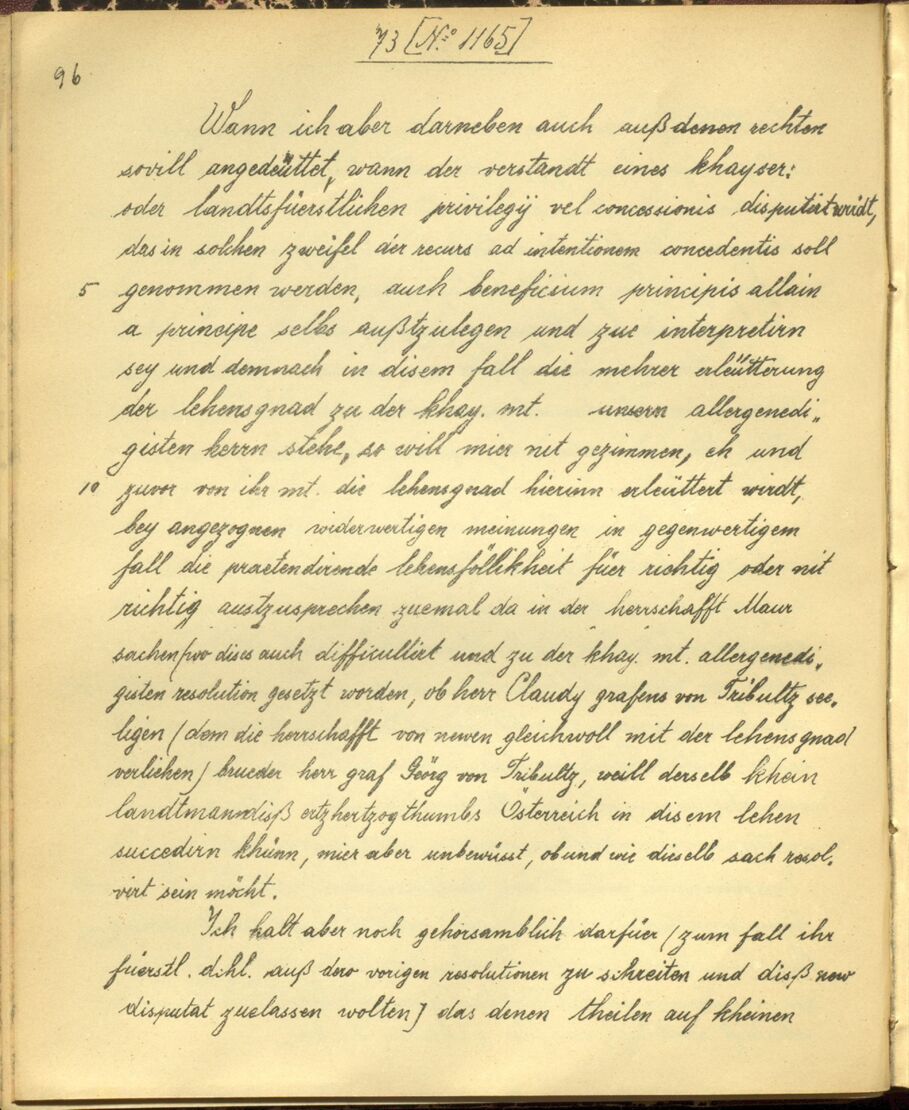 73 [No 1165]
96
Wann ich aber darneben auch auß denen rechten
sovill angedeüttet, wann der verstandt eines khayser:
oder landtsfüerstlichen privilegÿ vel concessionis disputirt wirdt,
das in solchen zweifel der recurs ad intentionem concedentis soll
5 genommen werden, auch beneficium principis allain
a principe selbs außtzulegen und zue interpretirn
sey und demnach in disem fall die mehrer erleütterung
der lehensgnad zu der khay. mt. unsern allergenedi„
gisten herrn stehe, so will mier nit gezimmen, eh und
10 zuvor von ihr mt. die lehensgnad hierinn erleüttert wirdt,
bey angezognen widerwertigen meinungen in gegenwertigem
fall die praetendirende lehensföllikheit füer richtig oder nit
richtig austzusprechen zuemal da in der herrschafft Maur
sachen (wo dises auch difficultirt und zu der khay. mt. allergenedi„
gisten resolution gesetzt worden, ob herr Claudy grafens von Tribultz see„
ligen (dem die herrschafft von newen gleichwoll mit der lehensgnad
verlichen) brueder herr graf Geörg von Tribultz, weill derselb khein
landtmann diß ertzhertzogthumbs Österreich in disem lehen
succedirn khünn, mier aber unbewüsst, ob und wie dieselb sach resol„
virt sein möcht.
Ich halt aber noch gehorsamblich darfüer (zum fall ihr
füerstl. dhl. auß dero vorigen resolutionen zu schreiten und diß new
disputat zuelassen wolten) das denen theilen auf kheinen